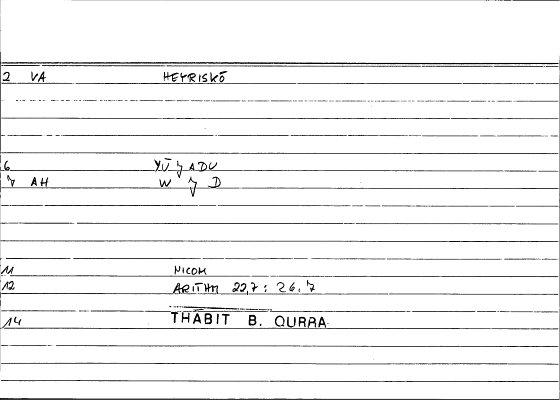 2 VA HEYRISKŌ
6 YŪǧADU
7 AH W ǧ D
11 NICOM
12 ARITHM 22,7 : 26,7
14 THABIT B. QURRA